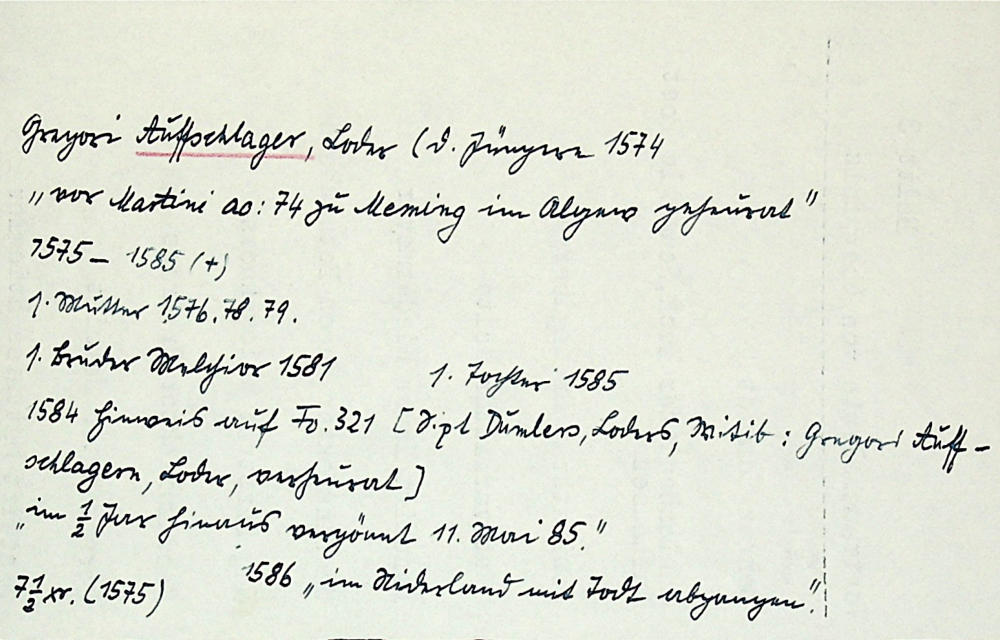 Gregori Auffschlager, Loder (d. Jüngere 1574
„vor Martini ao: 74 zu Meming im Algew geheurat"
1575 – 1585 (+)
1. Mutter 1576. 78. 79.
1. Bruder Melchior 1581 1. Tochter 1585
1584 Hinweis auf Fo. 321 [Sixt Dümlers, Loders, Witib : Gregori Auff-
schlagern, Loder, verheurat]
„im ½ Jar hinaus vergönnt 11. Mai 85."
7½ xr. (1575) 1586 „im Niderland mit Todt abgangen".